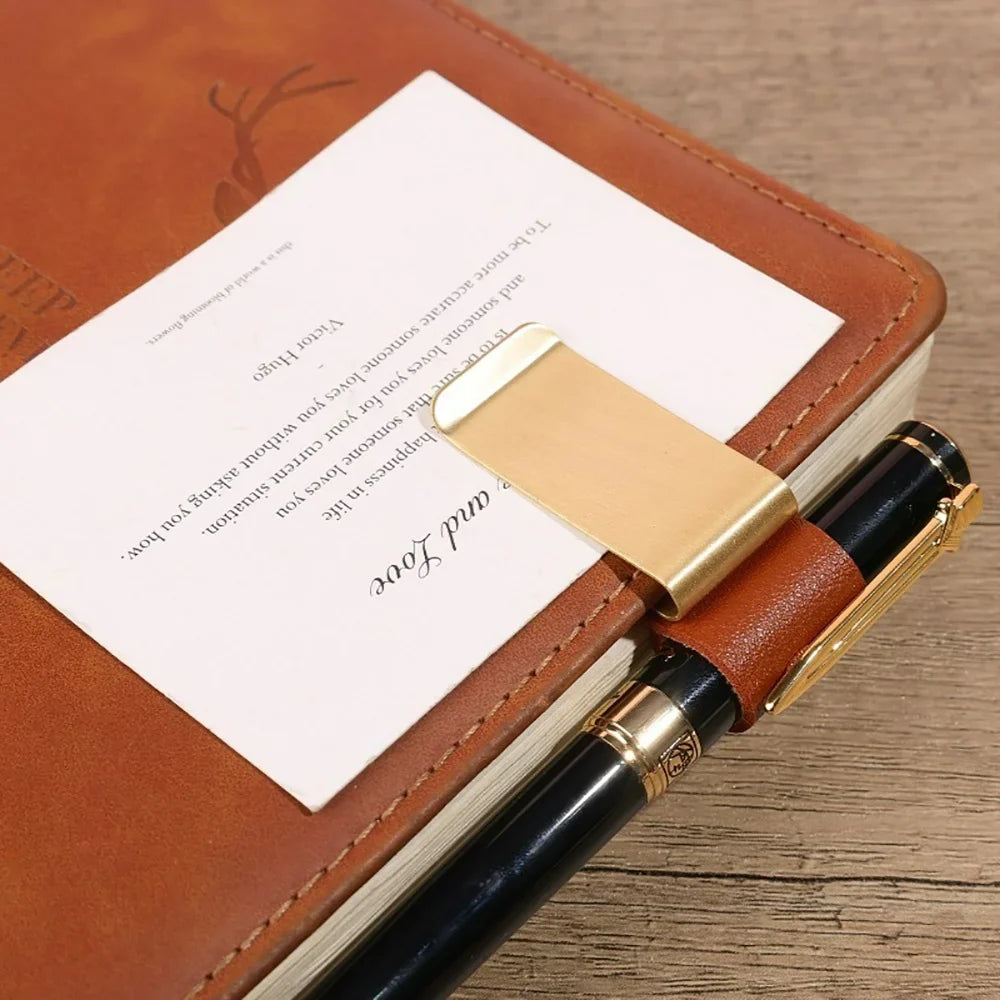 and Love
happiness in life
is to be sure that someone loves you
and someone loves you for your current situation.
To be more accurate someone loves you without asking you how.
-
Victor Hugo
this is a world of bloomning flowers.
EEP